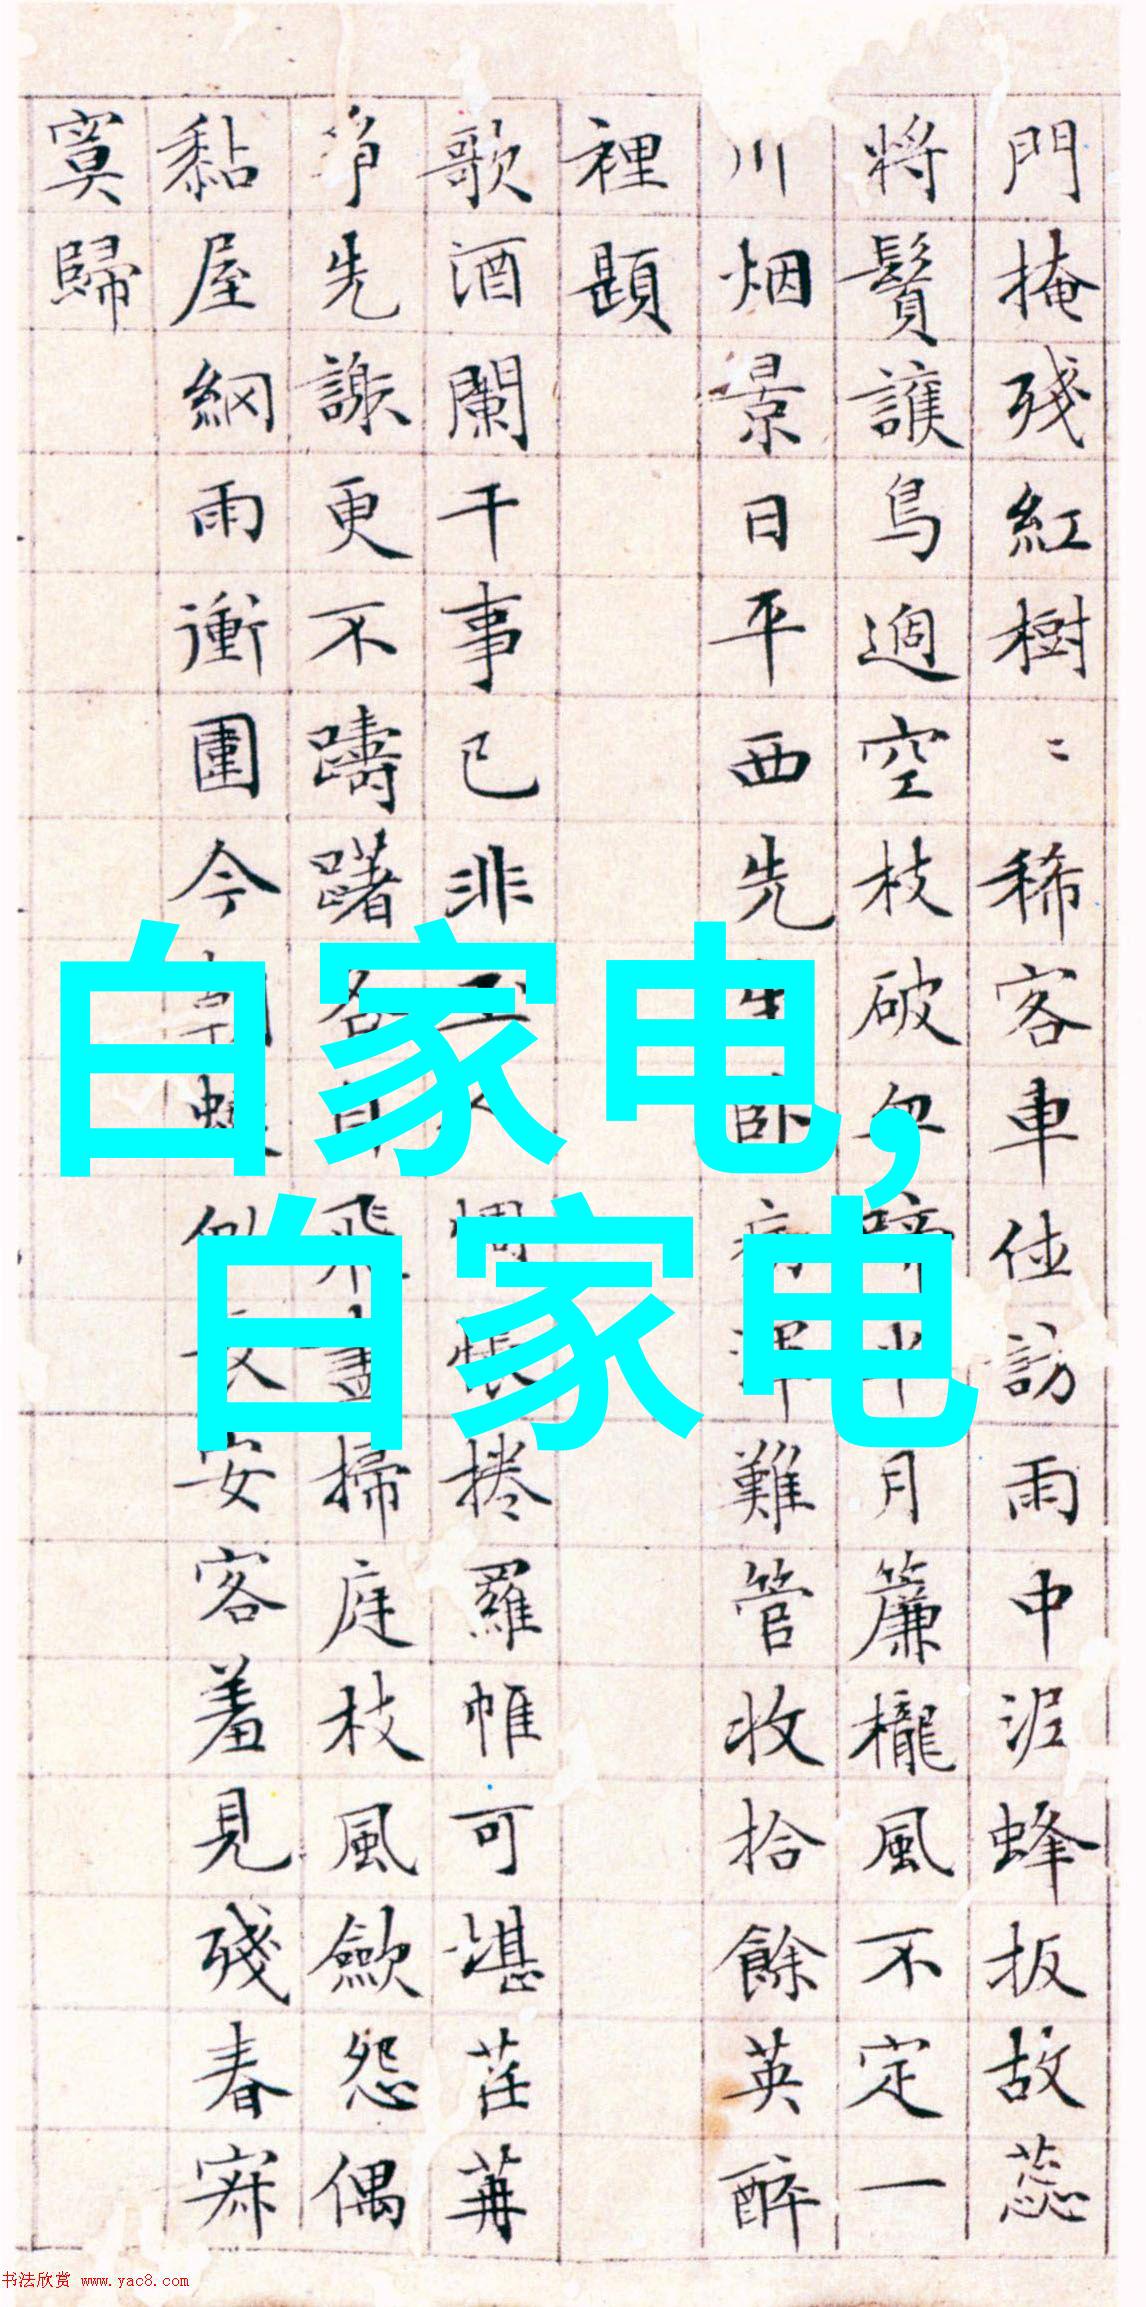 門掩殘紅樹〻稀客車佳訪雨中泥蜂扳故蕊
將鬢護鳥過空枝破血月簾櫳風不定一
川烟景日平西先生臥病渾難管收拾餘英醉
裡題
歌酒闌干事已非惆悵捲羅帷可堪荏苒
爭先謝更不躊躇各自飛畫掃庭枝風歛怨偶
黏屋網雨衝圍今朝蝶似長安客羞見殘春寂
寞歸
白家电,
白家电
书法欣赏 www.yac8.com